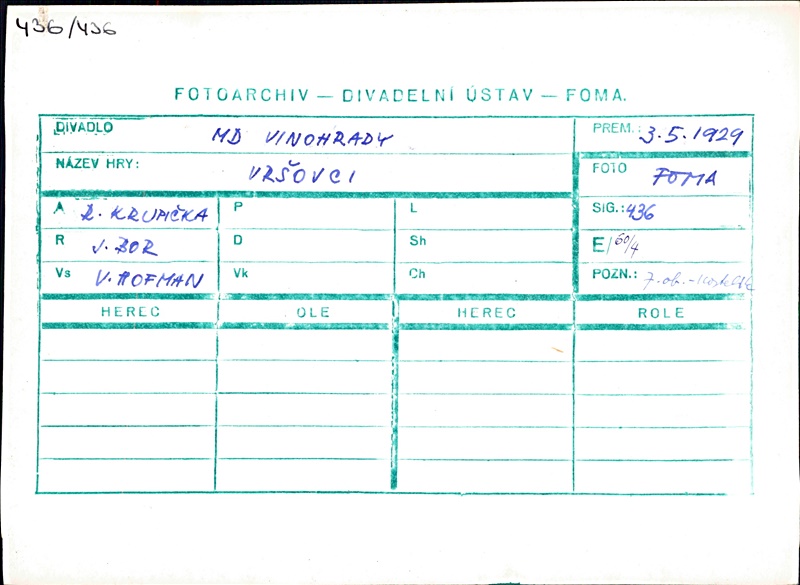 436/436
FOTOARCHIV — DIVADELNÍ ÚSTAV — FOMA.
DIVADLO MD VINOHRADY PREM.: 3.5.1929
NÁZEV HRY: VRŠOVCI FOTO FOMA
A R. KRUPIČKA P L SIG.: 436
R J. BOR D Sh E/60/4
Vs V. HOFMAN Vk Ch POZN.: 7.ob.-
HEREC OLE HEREC ROLE